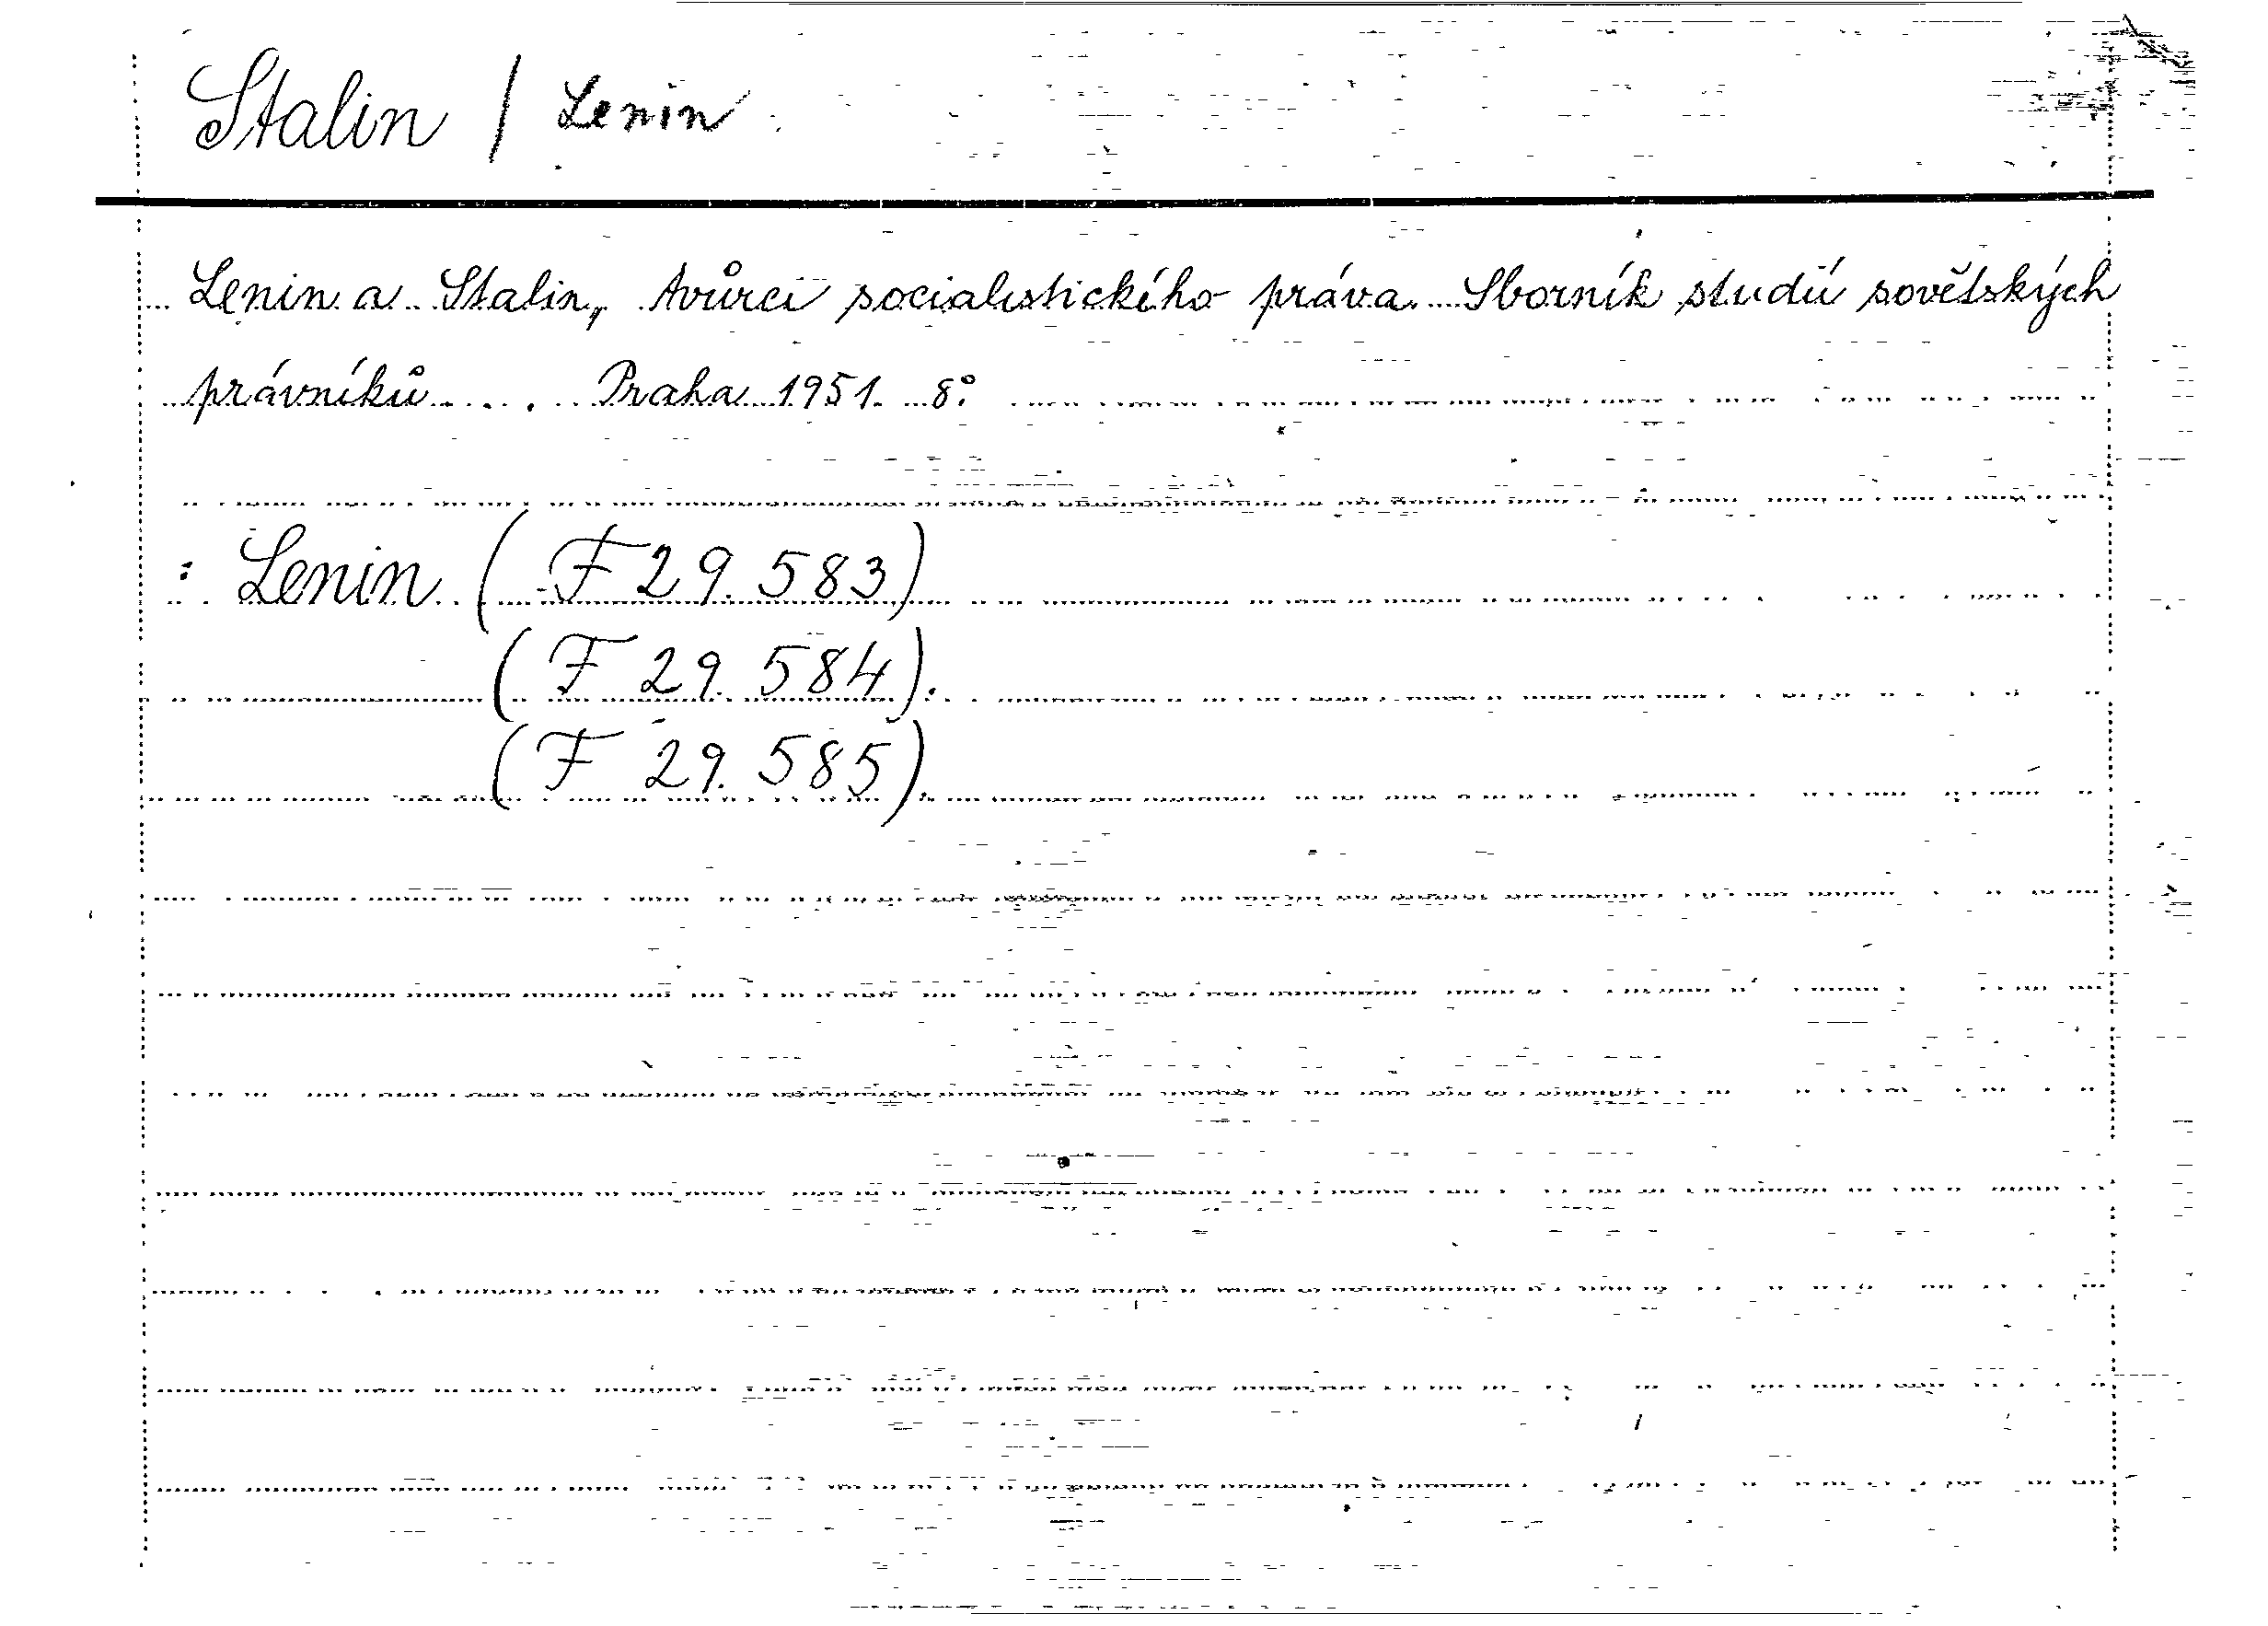 Stalin / Lenin
Lenin a Stalin, tvůrci socialistického práva. Sborník studií sovětských
právníků . . . . Praha 1951. 8°.
: Lenin ( F 29. 583)
( F 29. 584).
( F 29. 585).